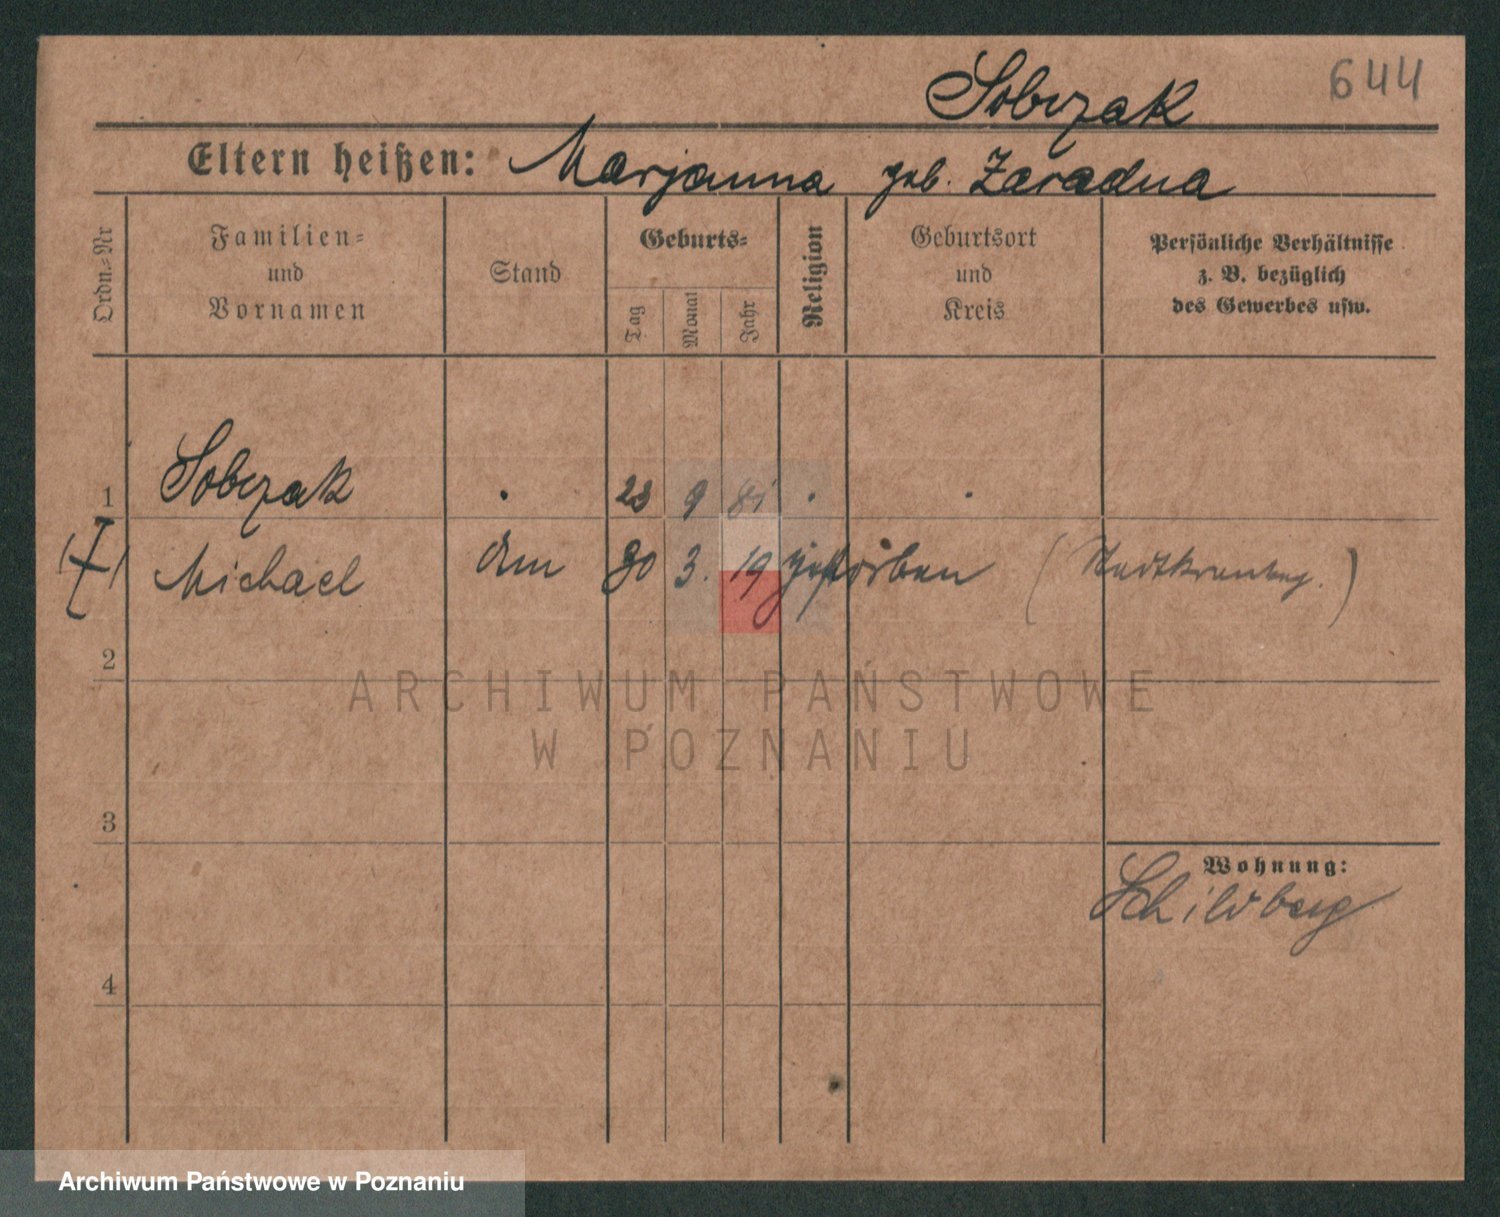 Sobczak 644
Eltern heißen: Marjanna geb. Zaradna
Ordn.-Nr
Familien- und Vornamen
Stand
Geburts-
Tag
Monat
Jahr
Religion
Geburtsort und Kreis
Persönliche Verhältnisse
z. B. bezüglich
des Gewerbes usw.
1 Sobczak . 23 9 81 . .
Michael am 30 3. 19 gestorben (Stadtkrankhg.)
2
ARCHIWUM PAŃSTWOWE
W POZNANIU
3
Wohnung:
Schildberg
4
Archiwum Państwowe w Poznaniu